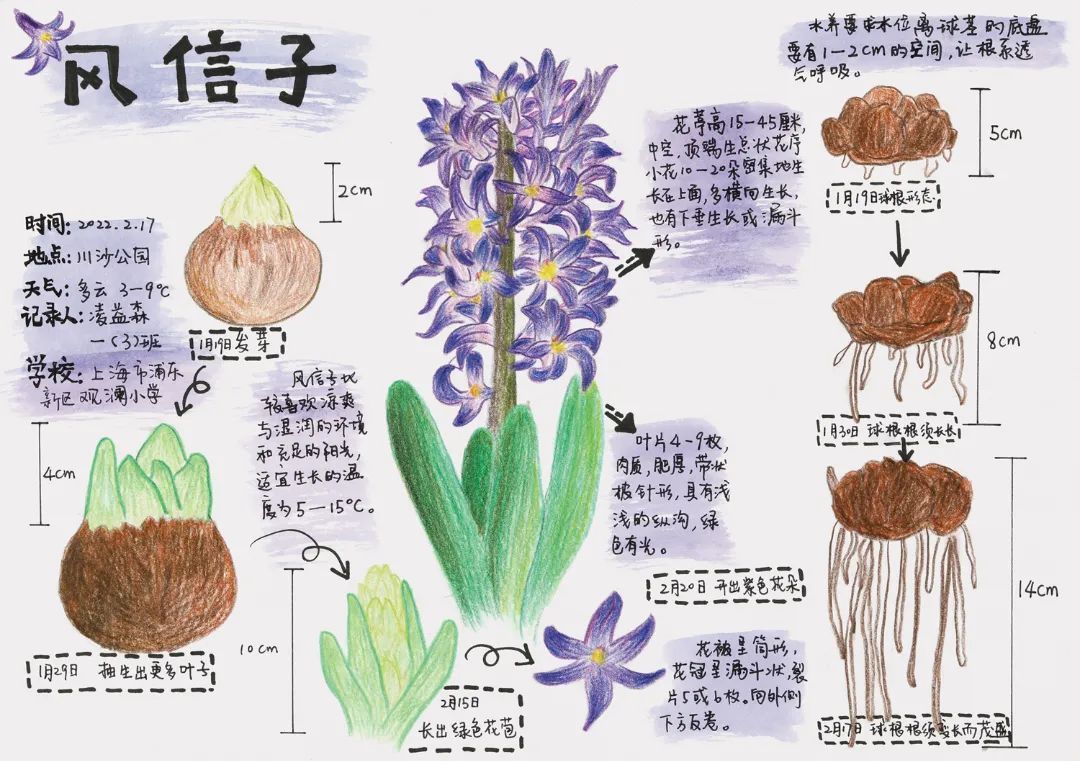 风信子
时间：2022.2.17
地点：川沙公园
天气：多云 3-9℃
记录人：凌益森
一(3)班
学校：上海市浦东
新区观澜小学
2cm
1月19日发芽
4cm
1月29日 抽生出更多叶子
风信子比
较喜欢凉爽
与湿润的环境
和充足的阳光，
适宜生长的温
度为5—15℃。
10cm
2月15日
长出绿色花苞
花葶高15-45厘米，
中空，顶端生总状花序
小花10-20朵密集地生
长在上面，多横向生长，
也有下垂生长或漏斗
形。
叶片4-9枚，
肉质，肥厚，带状
披针形，具有浅
浅的纵沟，绿
色有光。
2月20日 开出紫色花朵
花被呈筒形，
花冠呈漏斗状，裂
片5或6枚。向外侧
下方反卷。
水养要求水位离球茎的底盘
要有1-2cm的空间，让根系透
气呼吸。
5cm
1月19日球根形态
8cm
1月30日 球根根须长长
14cm
2月17日 球根根须变长而茂盛